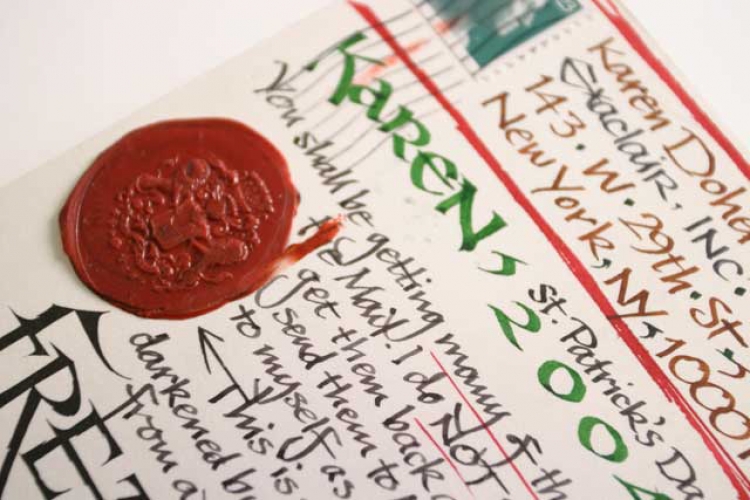 Karen Doha
Exaclair, INC.
143. W. 29th. St,
New York, NY, 1000
KAREN,
St. Patrick's Da
200
You shall be getting many of th
E Mail. I do NOT
get them back
(send them to
to myself as
← This is
darkened b
from a
FRE